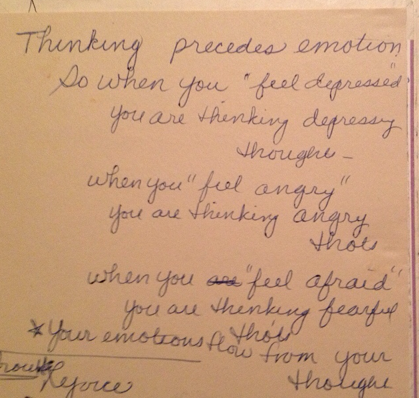 Thinking precedes emotion
So when you "feel depressed"
you are thinking depressing
thoughts -
when you "feel angry"
you are thinking angry
thots
when you are "feel afraid"
you are thinking fearful
thots
* Your emotions flow from your
thought
Rejoice